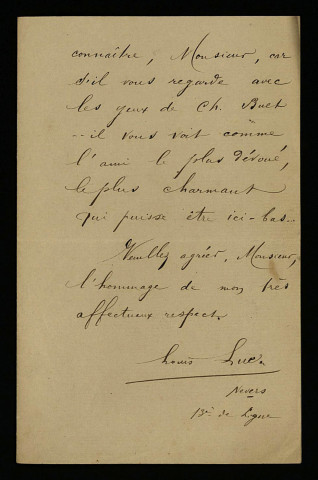 connaître, Monsieur, car
s'il vous regarde avec
les yeux de Ch. Buet
-- il vous voit comme
l'ami le plus dévoué,
le plus charmant
qui puisse être ici-bas..
Veuillez agréer, Monsieur,
l'hommage de mon très
affectueux respect.
Louis
Nevers
13e de Ligne